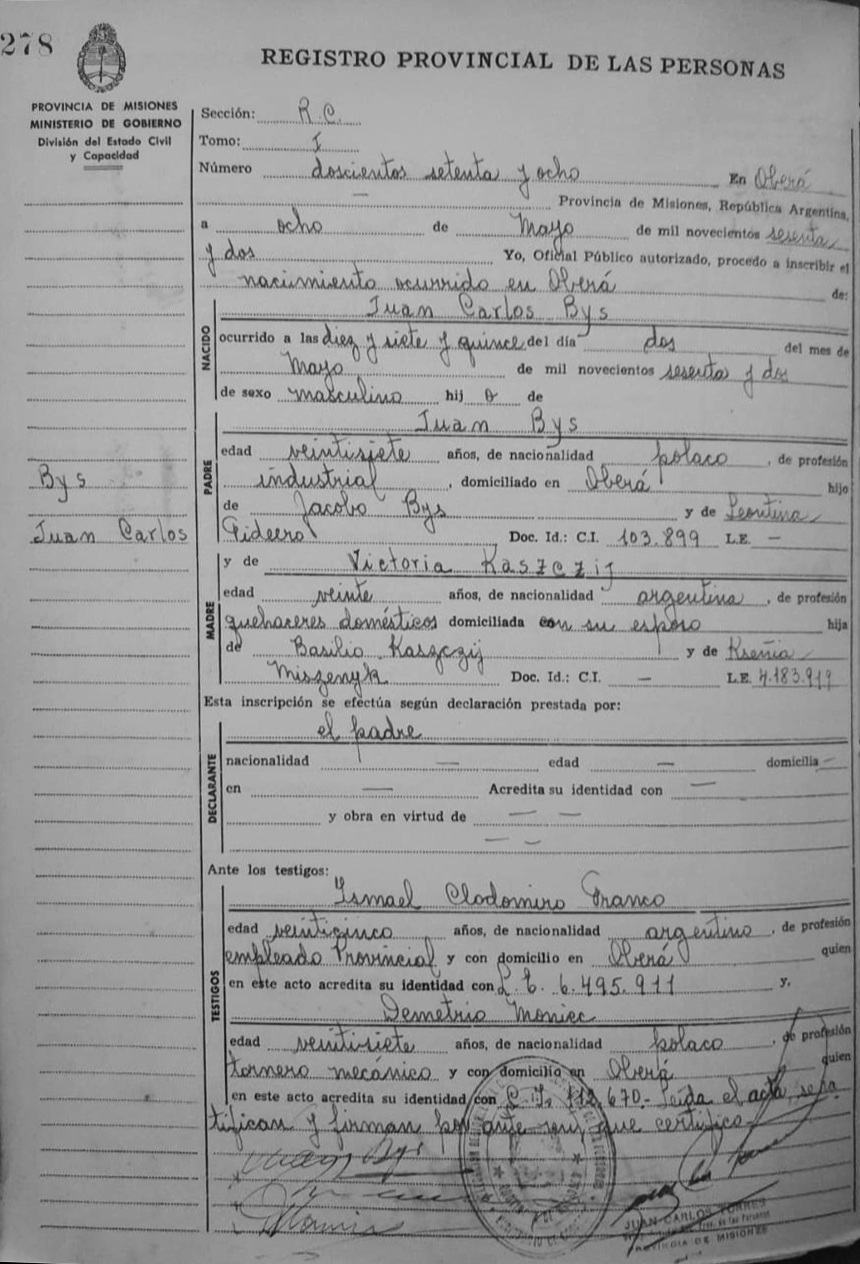 278
REGISTRO PROVINCIAL DE LAS PERSONAS
PROVINCIA DE MISIONES
MINISTERIO DE GOBIERNO
División del Estado Civil
y Capacidad
Sección: R.C.
Tomo: I
Número doscientos setenta y ocho En Oberá
— Provincia de Misiones, República Argentina,
a ocho de Mayo de mil novecientos sesenta
y dos Yo, Oficial Público autorizado, procedo a inscribir el
nacimiento ocurrido en Oberá de:
NACIDO
Juan Carlos Bys
ocurrido a las diez y siete y quince del día dos del mes de
Mayo de mil novecientos sesenta y dos
de sexo masculino hijo de
PADRE
Juan Bys
edad veintisiete años, de nacionalidad polaco, de profesión
industrial, domiciliado en Oberá hijo
de Jacobo Bys y de Leontina
Doc. Id.: C.I. 103.899 L.E. —
Bys
Juan Carlos
MADRE
y de Victoria Kaszczij
edad veinte años, de nacionalidad argentina, de profesión
quehaceres domésticos domiciliada con su esposo hija
de Basilio Kaszczij y de Kseñia
Miszenyk Doc. Id.: C.I. — L.E. 4.183.919
Esta inscripción se efectúa según declaración prestada por:
DECLARANTE
el padre
nacionalidad — edad — domicilia —
en — Acredita su identidad con —
y obra en virtud de — —
— —
Ante los testigos:
TESTIGOS
Ismael Clodomiro Franco
edad veinticinco años, de nacionalidad argentino, de profesión
empleado Provincial y con domicilio en Oberá quien
en este acto acredita su identidad con L.E. 6.495.911 y,
Demetrio Moniec
edad veintisiete años, de nacionalidad polaco, de profesión
tornero mecánico y con domicilio en Oberá quien
en este acto acredita su identidad con C.I. 112.670.- Leída el acta, se ra
tifican y firman por ante mí, que certifico.-
JUAN CARLOS TORRES
PROVINCIA DE MISIONES